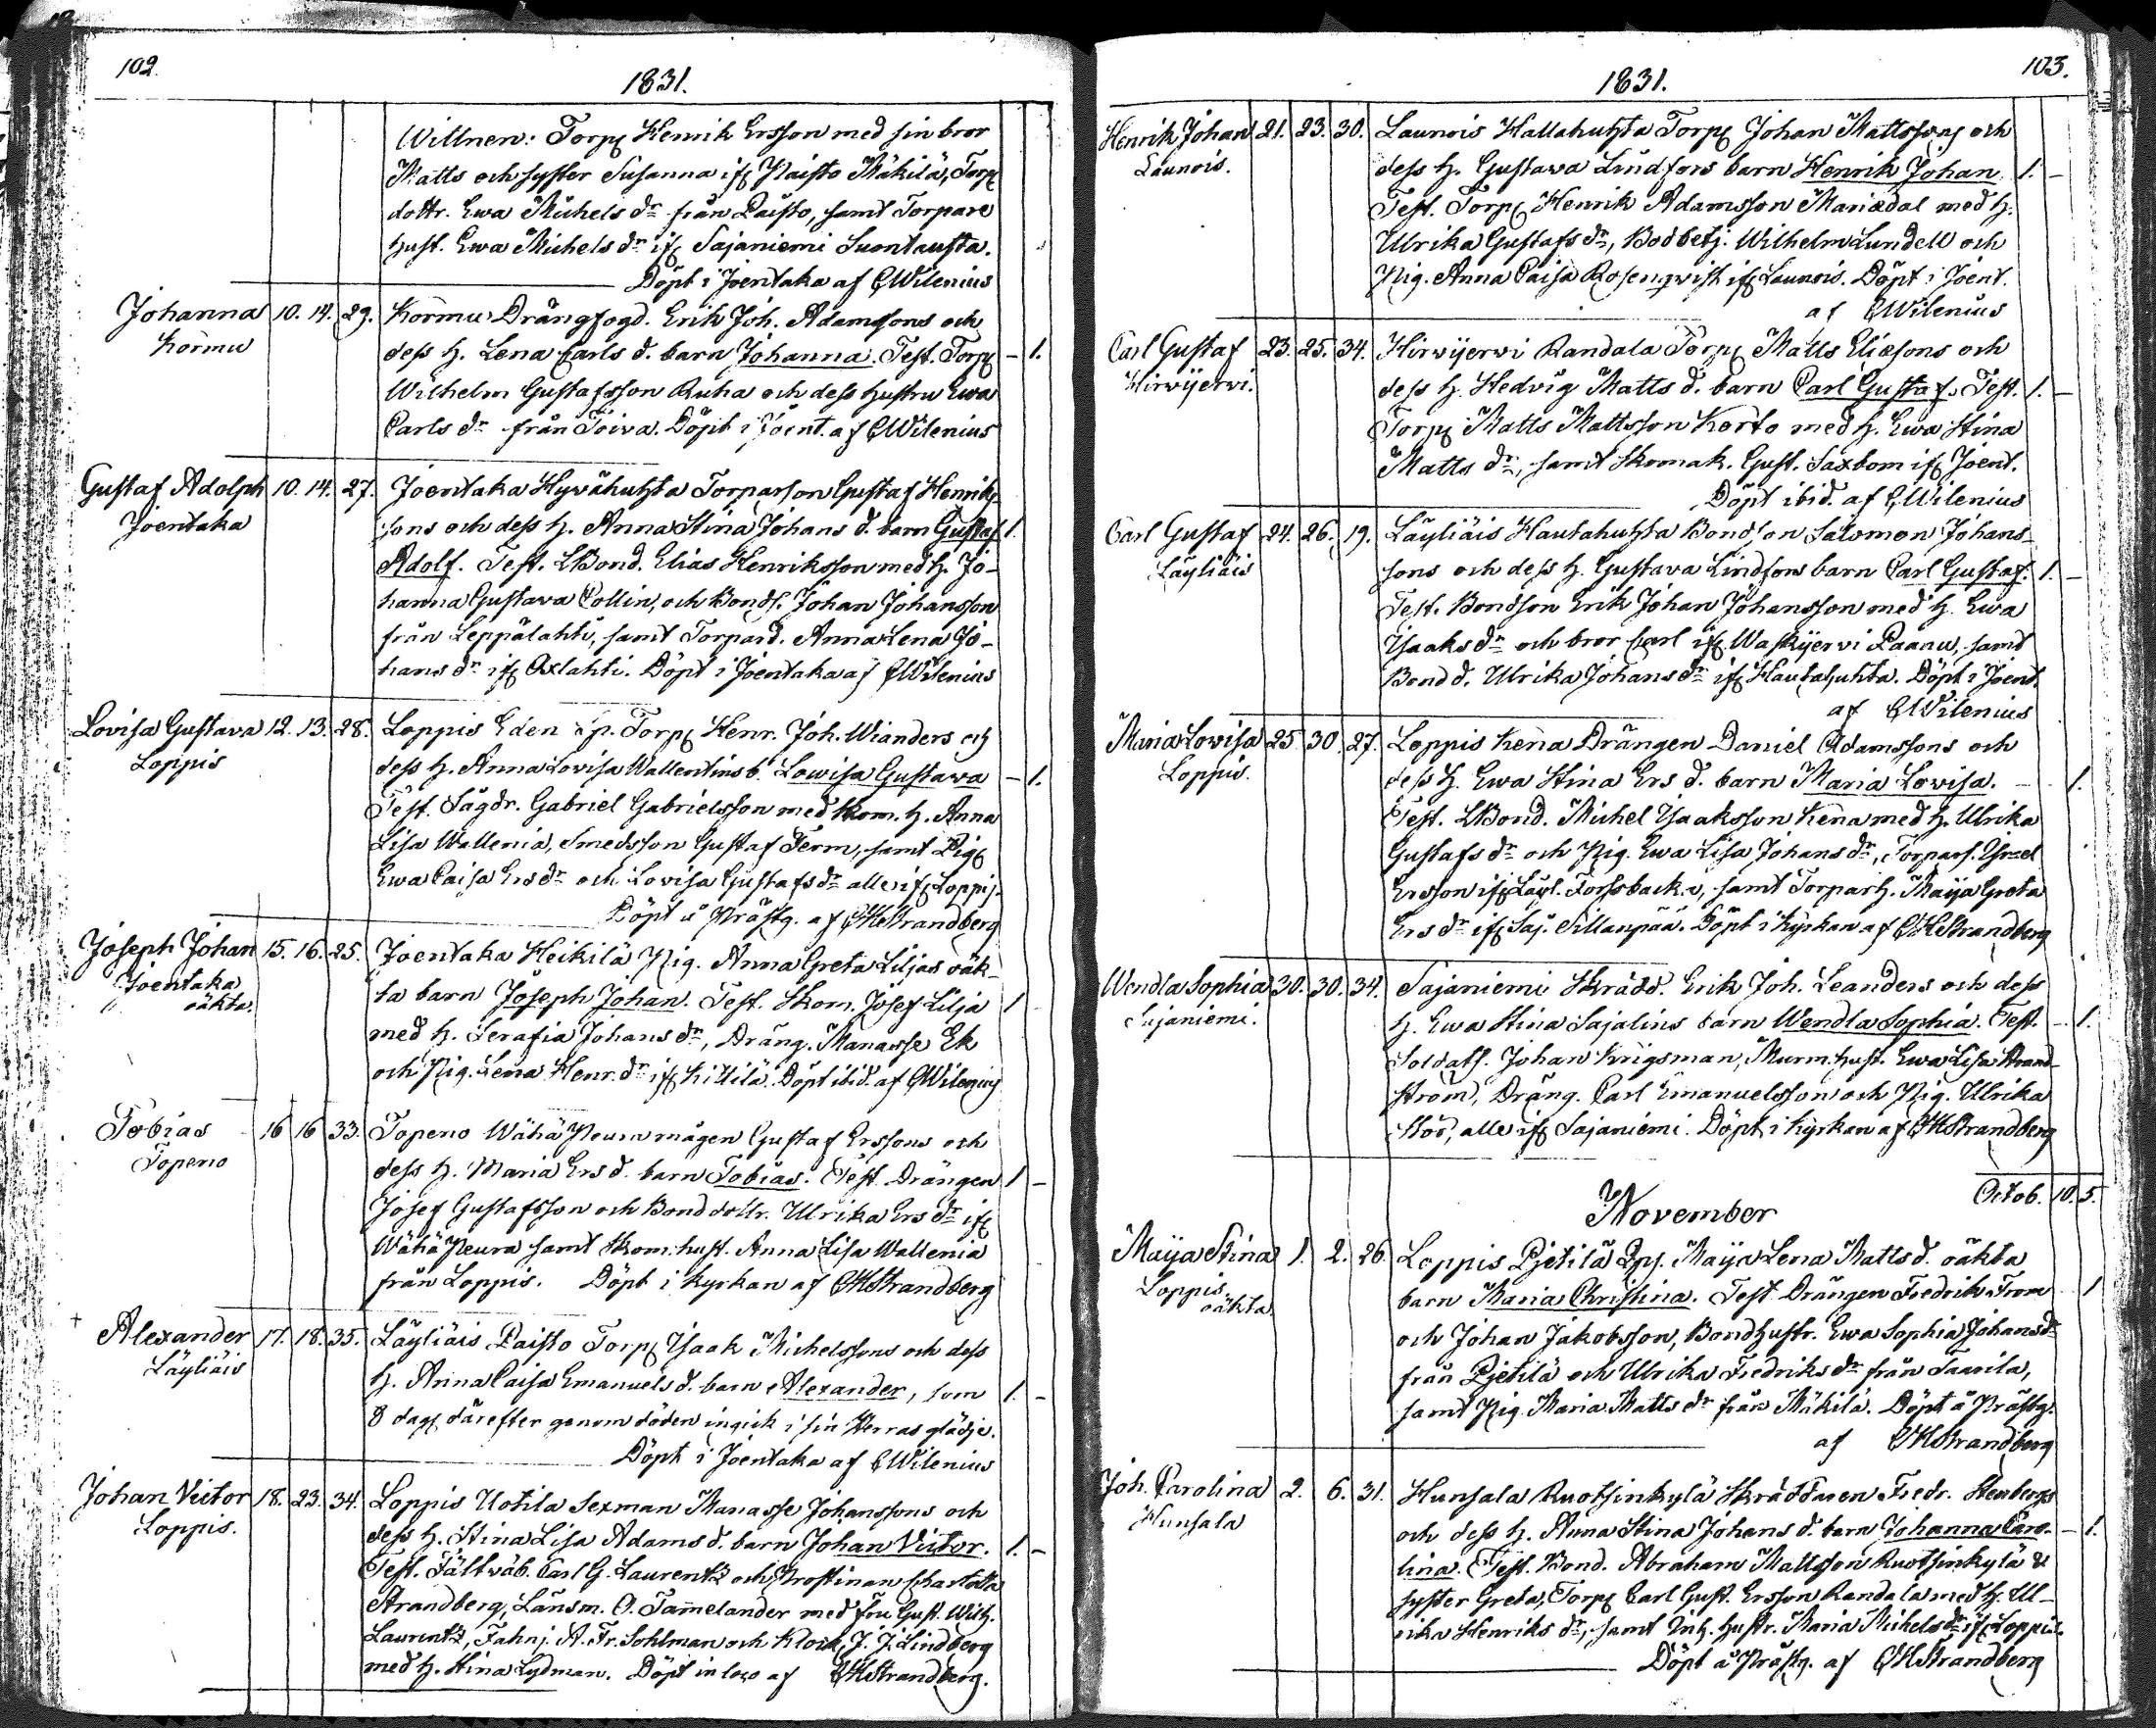 102.
1831.
Willnen: Torp. Henrik Ersson med sin bror
Matts och syster Susanna if. Paisto Mäkilä, Torp
dottr. Ewa Michels dr från Paisto, samt Torpare
hust. Ewa Michels dr if. Sajaniemi Suontausta.
Döpt i Joentaka af CWilenius
Johanna 10. 14. 29. Kormu Drängfogd. Erik Joh. Adamssons och
Kormu dess h. Lena Carls d. barn Johanna. Test. Torp. – 1.
Wilhelm Gustafsson Ruha och dess hustru Ewa
Carls dr från Toiva. Döpt i Joent. af CWilenius
Gustaf Adolph 10. 14. 27. Joentaka Hywähuhta Torparson Gustaf Henrik
Joentaka sons och dess h. Anna Stina Johans d. barn Gustaf 1.
Adolf. Test. LBond. Elias Henriksson med h. Jo-
hanna Gustava Collin, och Bonds. Johan Johansson
från Leppälahti, samt Torpard. Anna Lena Jo-
hans dr if. Oxlahti. Döpt i Joentaka af CWilenius
Lovisa Gustava 12. 13. 28. Loppis Eden Torp. Henr. Joh. Wianders och
Loppis dess h. Anna Lovisa Wallentins b. Lowisa Gustawa – 1.
Test. Sågdr. Gabriel Gabrielsson med Skom. h. Anna
Lisa Wallenia, Smedsson Gustaf Ferm, samt Pig.
Ewa Caisa Ers dr och Lovisa Gustafs dr alle if. Loppis.
Döpt å Prästg. af CHStrandberg
Joseph Johan 15. 16. 25. Joentaka Heikilä Pig. Anna Greta Liljas oäk-
Joentaka ta barn Joseph Johan. Test. Skom. Josef Lilja 1
oäkta. med h. Serafia Johans dr, Dräng. Manasse Ek
och Pig. Lena Henr. dr if. Kittilä. Döpt ibid. af CWilenius
Tobias 16 16 33. Topeno Wähä Peura mågen Gustaf Erssons och
Topeno dess h. Maria Ers d. barn Tobias. Test. Drängen 1 –
Josef Gustafsson och Bonddottr. Ulrika Ers dr if.
Wähä Peura samt Skom. hust. Anna Lisa Wallenia
från Loppis. Döpt i kyrkan af CHStrandberg
+ Alexander 17. 18. 35. Läyliäis Paisto Torp. Isaak Michelssons och dess
Läyliäis h. Anna Caisa Emanuels d. barn Alexander, som 1. –
8 dag. därefter genom döden ingick i sin Herras glädje.
Döpt i Joentaka af CWilenius
Johan Victor 18. 23. 34. Loppis Uotila Sexman Manasse Johanssons och
Loppis. dess h. Stina Lisa Adams d. barn Johan Victor. 1. –
Test. Fältwäb. Carl G. Laurentz och Prostinnan Charlotta
Strandberg, Länsm. O. Tamelander med fru Gust. Wilh.
Laurentz, Fahnj. A. Fr. Sohlman och Klock. J. J. Lindberg
med h. Stina Lydman. Döpt in loco af CHStrandberg.
103.
1831.
Henrik Johan 21. 23. 30. Launois Hallahuhta Torp. Johan Mattssons och
Launois. dess h. Gustawa Lindfors barn Henrik Johan. 1. –
Test. Torp. Henrik Adamsson Mariedal med h.
Ulrika Gustafs dr, Bodbetj. Wilhelm Lundell och
Pig. Anna Caisa Rosenqwist if. Launois. Döpt i Joent.
af CWilenius
Carl Gustaf 23. 25. 34. Hirvijerwi Randala Torp. Matts Eliæsons och
Hirwijerwi. dess h. Hedvig Matts d. barn Carl Gustaf. Test. 1. –
Torp. Matts Mattsson Korto med h. Ewa Stina
Matts dr, samt Skomak. Gust. Saxbom if. Joent.
Döpt ibid. af CWilenius
Carl Gustaf 24. 26. 19. Läyliäis Hautahuhta Bondson Salomon Johans-
Läyliäis sons och dess h. Gustava Lindfors barn Carl Gustaf. 1. –
Test. Bondson Erik Johan Johansson med h. Ewa
Isaaks dr och bror Carl if. Waskijerwi Paanu, samt
Bond d. Ulrika Johans dr if. Hautahuhta. Döpt i Joent.
af CWilenius
Maria Lovisa 25 30 27. Loppis Kena Drängen Daniel Adamssons och
Loppis. dess h. Ewa Stina Ers d. barn Maria Lovisa. – 1.
Test. LBond. Michel Isaaksson Kena med h. Ulrika
Gustafs dr och Pig. Ewa Lisa Johans dr, Torpars. Israel
Ersson if. Läyl. Forssbacka, samt Torparh. Maija Greta
Ers dr if. Saj. Sillanpää. Döpt i kyrkan af CHStrandberg
Wendla Sophia 30. 30. 34. Sajaniemi Skrädd. Erik Joh. Leanders och dess
Sajaniemi. h. Ewa Stina Sajalins barn Wendla Sophia. Test. – 1.
Soldats. Johan Krigsman, Murm. hust. Ewa Lisa Strand-
ström, Dräng. Carl Emanuelsson och Pig. Ulrika
Stöd, alle if. Sajaniemi. Döpt i kyrkan af CHStrandberg
Octob. 10. 5.
November
Maija Stina 1. 2. 26. Loppis Pietilä Maija Lena Matts d. oäkta
Loppis. barn Maria Christina. Test. Drängen Fredrik From 1
oäkta och Johan Jakobsson, Bondhustr. Ewa Sophia Johans dr
från Pietilä och Ulrika Fredriks dr från Saarila,
samt Pig. Maria Matts dr från Mäkilä. Döpt å Prästg.
af CHStrandberg
Joh. Carolina 2. 6. 31. Hunsala Ruotsinkylä Skräddaren Fredr. Stenbergs
Hunsala och dess h. Anna Stina Johans d. barn Johanna Caro- – 1.
lina. Test. Bond. Abraham Mattsson Ruotsinkylä &
syster Greta, Torp. Carl Gust. Ersson Randala med h. Ul-
rika Henriks dr, samt Inh. hustr. Maria Michels dr if. Loppis.
Döpt å Prästg. af CHStrandberg